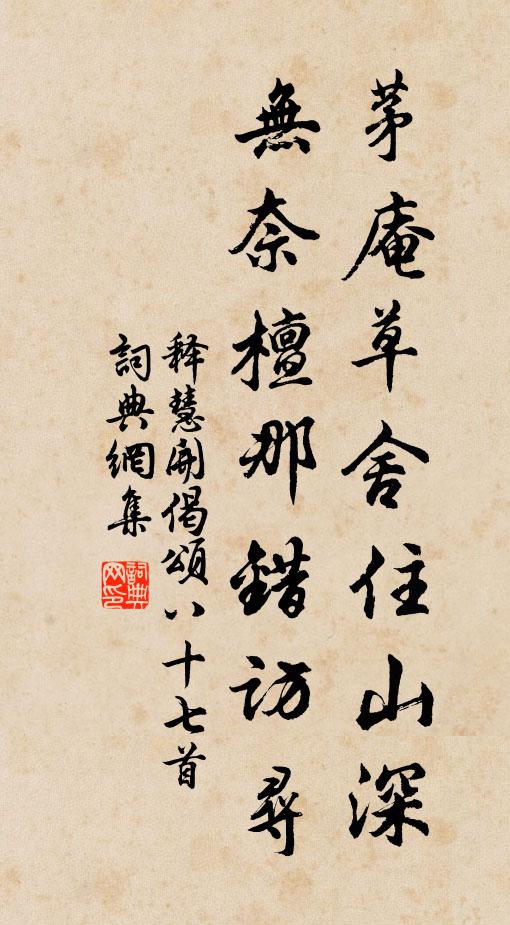 茅庵草舍住山深
無奈檀那錯訪尋
释慧開偈頌八十七首
詞典網集
詞典网印